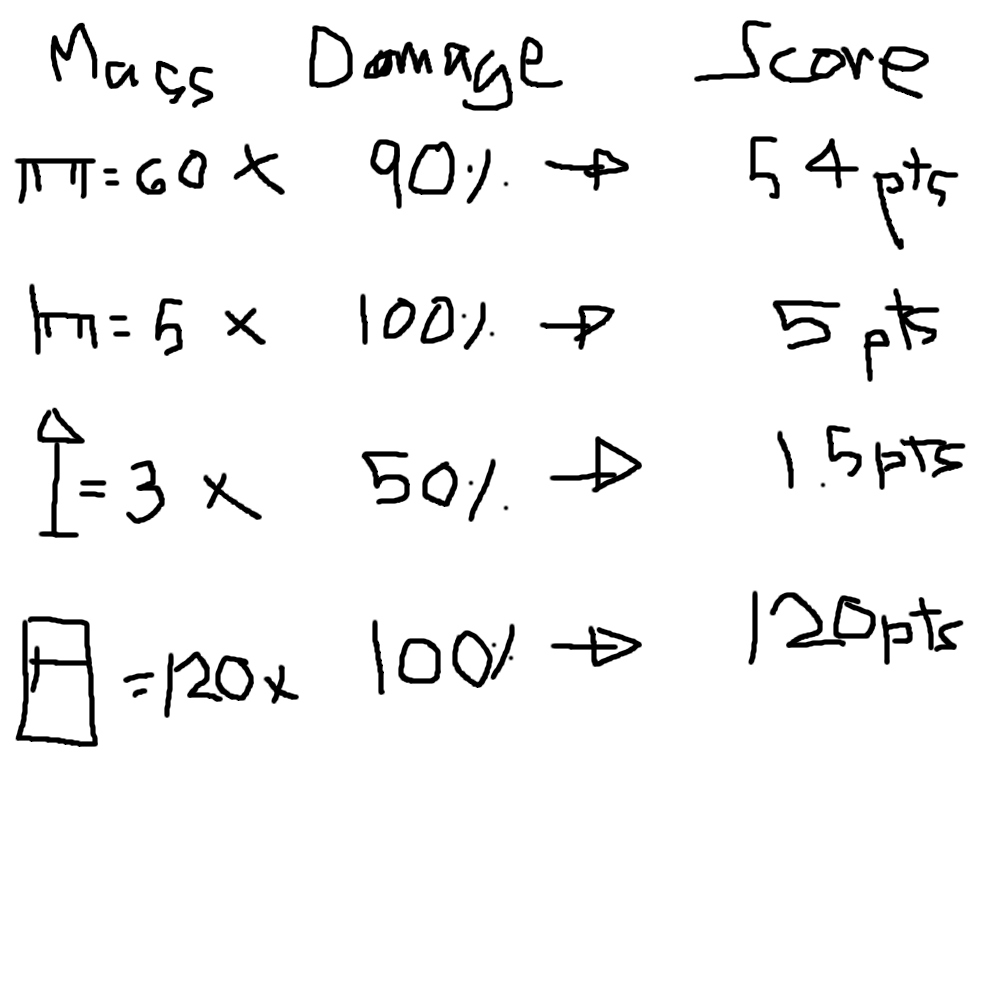 Mass Damage Score
=60 x 90% → 54 pts
=5 x 100% → 5 pts
=3 x 50% → 1.5pts
=120x 100% → 120pts